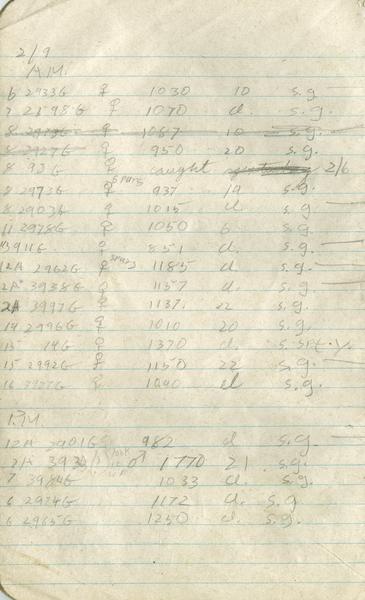 2/9
A.M.
6 2933G ♀ 1030 10 s.g.
7 2898G ♀ 1070 d. s.g.
8 ♀ 1067 10 s.g.
8 2927G ♀ 950 20 s.g.
8 92G ♀ caught 2/6
8 2973G ♀ spurs 937 19 s.g.
8 2903G ♀ 1015 d s.g.
11 2978G ♀ 1050 6 s.g.
3911G ♀ 851 d. s.g.
12A 2962G ♀ spurs 1185 d. s.g.
2A 3938G ♀ 1157 d. s.g.
2A 3997G ♀ 1137. 22 s.g.
14 2996G ♀ 1010 20 s.g.
15 14G ♀ 1370 d.
15 2992G ♀ 1150 22 s.g.
16 ♀ 1040 d s.g.
P.M.
12A 3901G 982 d s.g.
♂ 1770 21 s.g.
7 3984G 1033 d. s.g.
6 2974G 1172 d. s.g
6 2965G 1250 d. s.g.